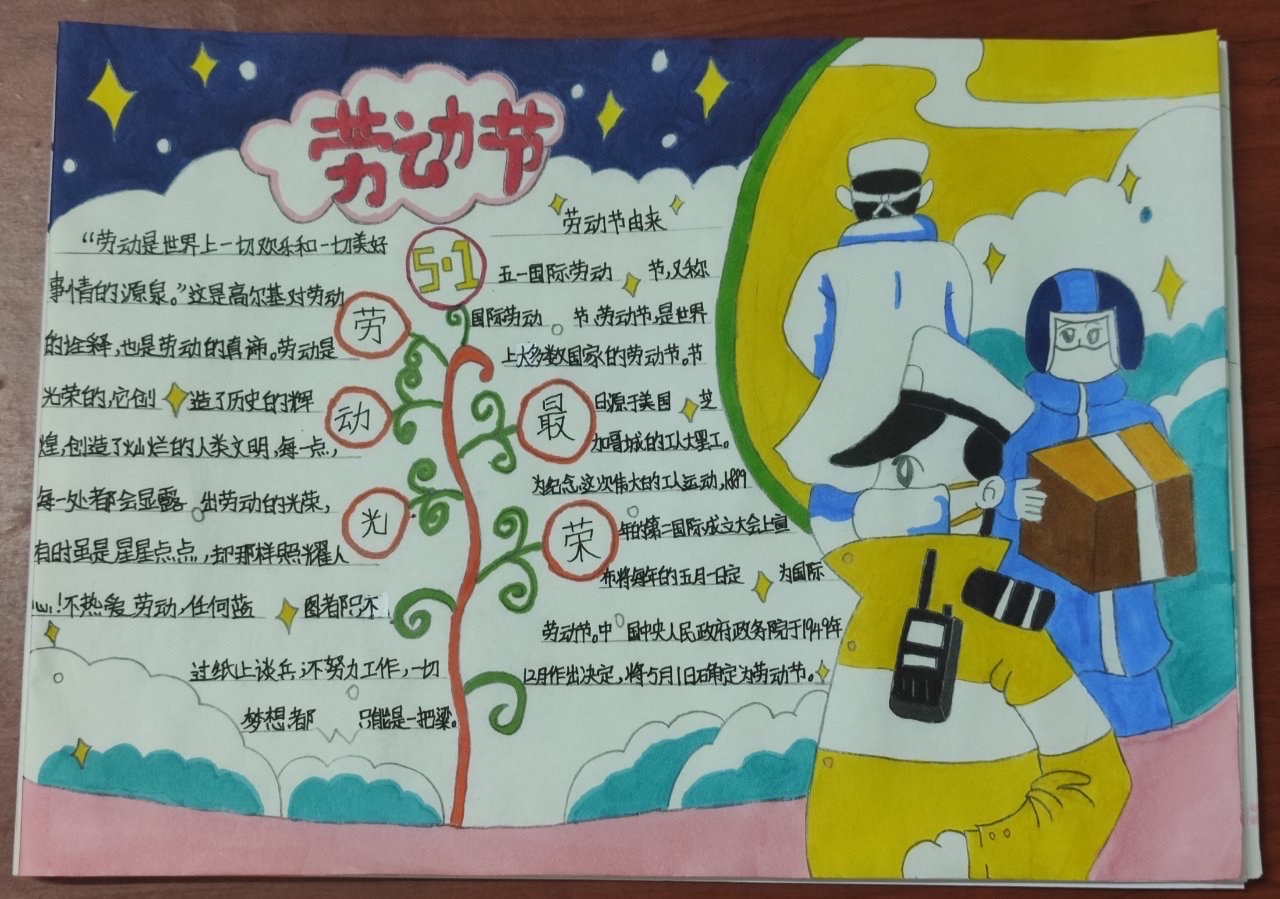 劳动节
5·1
劳
动
光
最
荣
“劳动是世界上一切欢乐和一切美好
事情的源泉。”这是高尔基对劳动
的诠释,也是劳动的真谛。劳动是
光荣的,它创造了历史的辉
煌,创造了灿烂的人类文明,每一点,
每一处都会显露出劳动的光荣,
有时虽是星星点点,却那样照耀人
心!不热爱劳动,任何蓝图都只不
过纸上谈兵;不努力工作,一切
梦想都只能是一把梁。
劳动节由来
五一国际劳动节,又称
国际劳动节、劳动节,是世界
上大多数国家的劳动节。节
日源于美国芝
加哥城的工人大罢工。
为纪念这次伟大的工人运动,1889
年的第二国际成立大会上宣
布将每年的五月一日定为国际
劳动节。中国中央人民政府政务院于1949年
12月作出决定,将5月1日确定为劳动节。